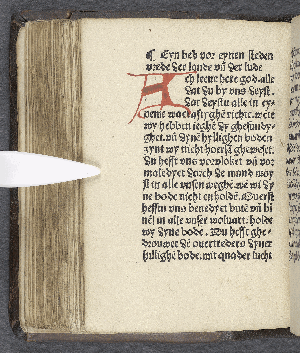 ¶ Eyn bed vor eynen steden
vrede der lande vn̄ der lude
Ach leue here god. alle
dat du by vns deyst.
dat deystu alle in ey-
neme warafftyghē richte. wēte
wy hebben ieghē dy ghesundy-
ghet. vn̄ dynē hyllighen boden
synt wy nicht horsā gheweset.
Du hefst vns vorvloket vn̄ vor
maledyet dorch de mund moy
si in alle vnsen weghē. wē wi dy
ne bode nicht en holdē. Ouerst
hefstu vns benedyet butē vn̄ bī
nē in alle vnser wolvart. holde
wy dyne bode. Du hefst ghe-
drouwet dē ouertreders dyner
hillighē bode. mit quader lucht